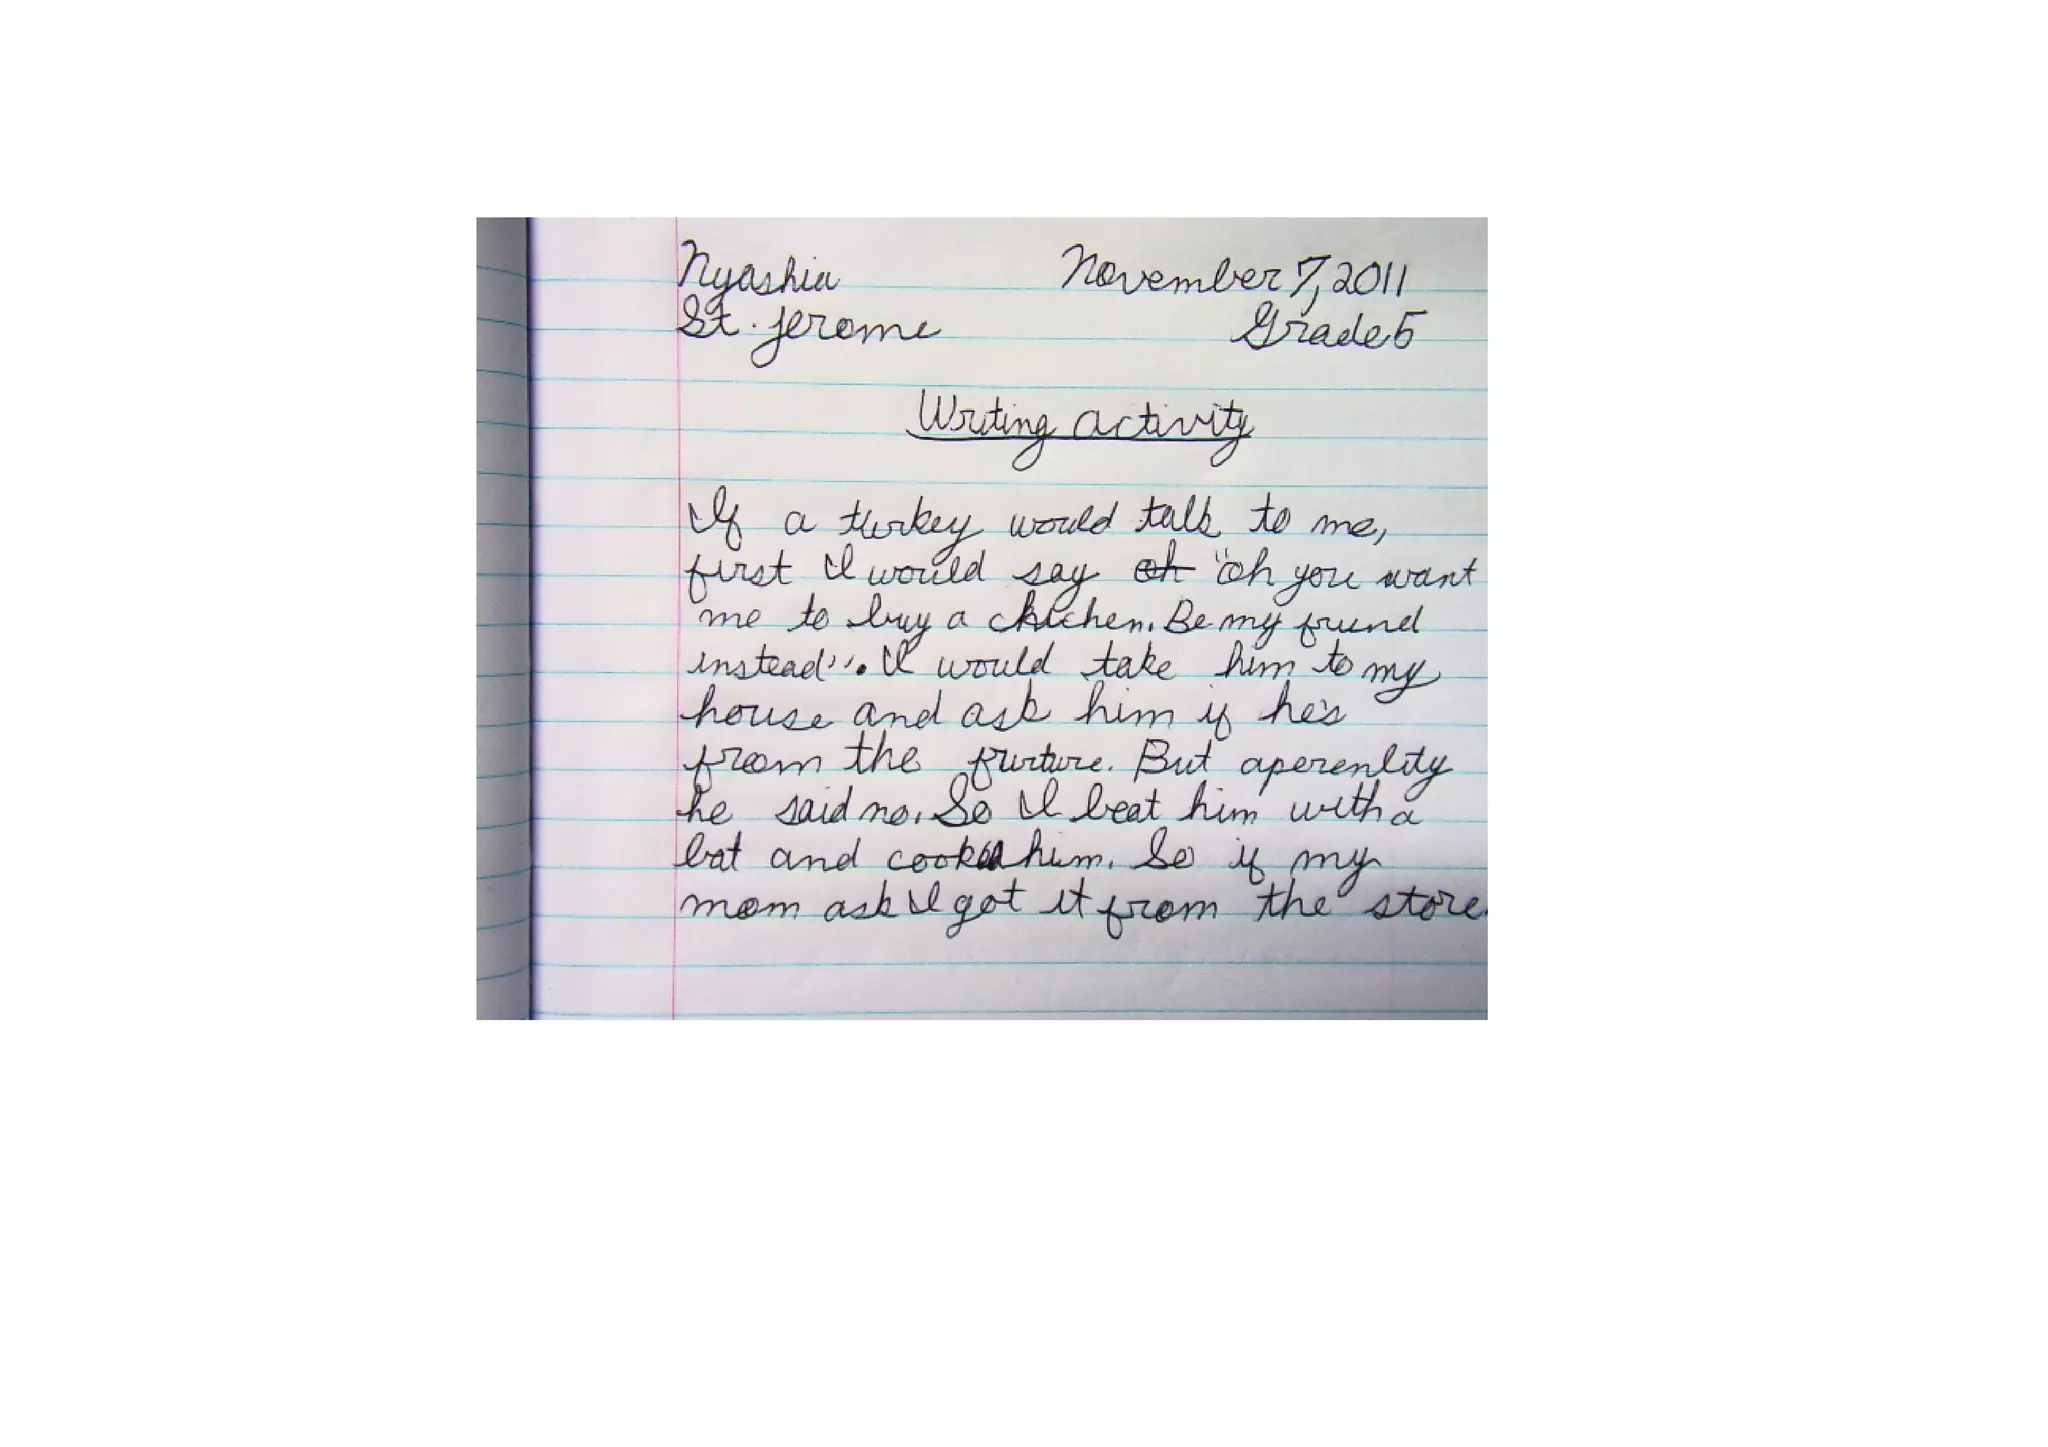 Nyashia November 7, 2011
St. Jerome Grade 5
Writing activity
If a turkey would talk to me,
first I would say oh "oh you want
me to buy a chichen. Be my friend
instead". I would take him to my
house and ask him if he's
from the furture. But aperenlity
he said no. So I beat him with a
bat and cooked him. So if my
mom ask I got it from the store.